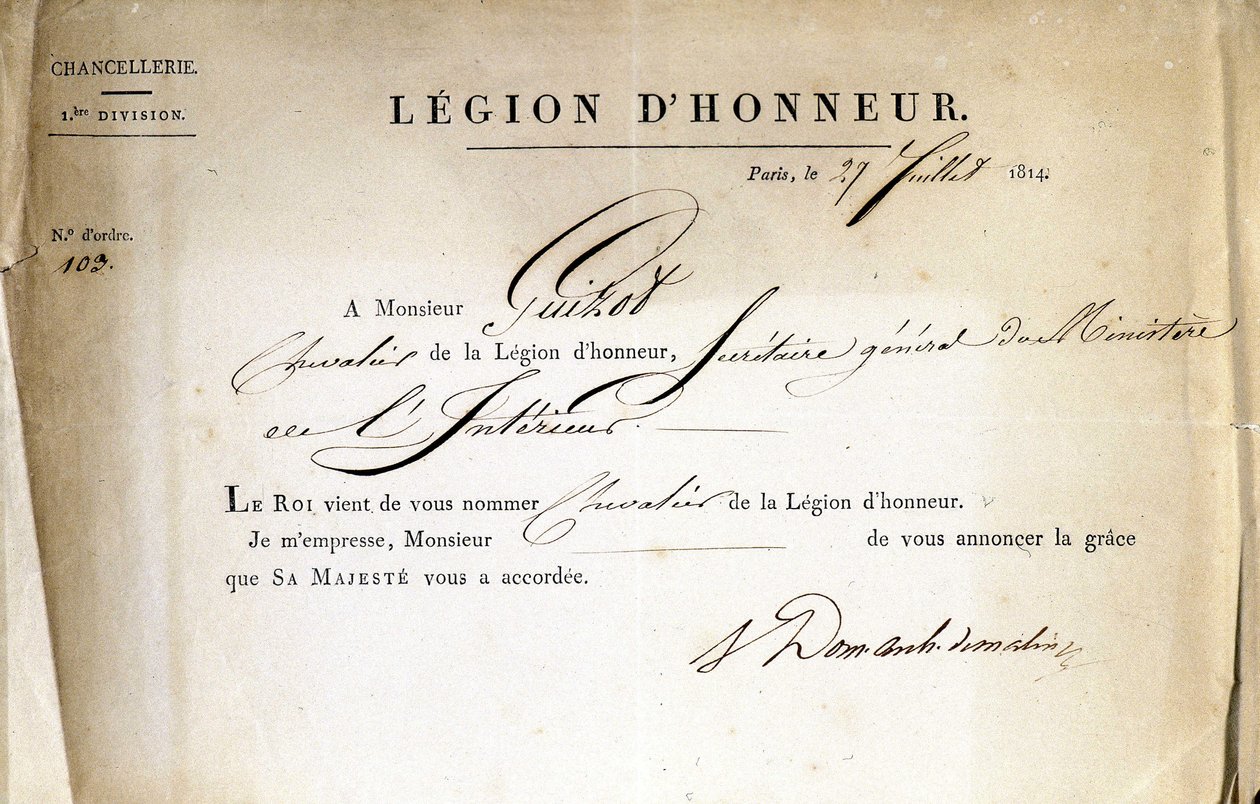 CHANCELLERIE.
1.ère DIVISION.
LÉGION D'HONNEUR.
Paris, le 27 Juillet 1814.
N.º d'ordre.
103.
A Monsieur Guizot
Chevalier de la Légion d'honneur, Secrétaire général du Ministère
de l'Intérieur.
LE ROI vient de vous nommer Chevalier de la Légion d'honneur.
Je m'empresse, Monsieur de vous annoncer la grâce
que SA MAJESTÉ vous a accordée.
Dom. arch. de malines